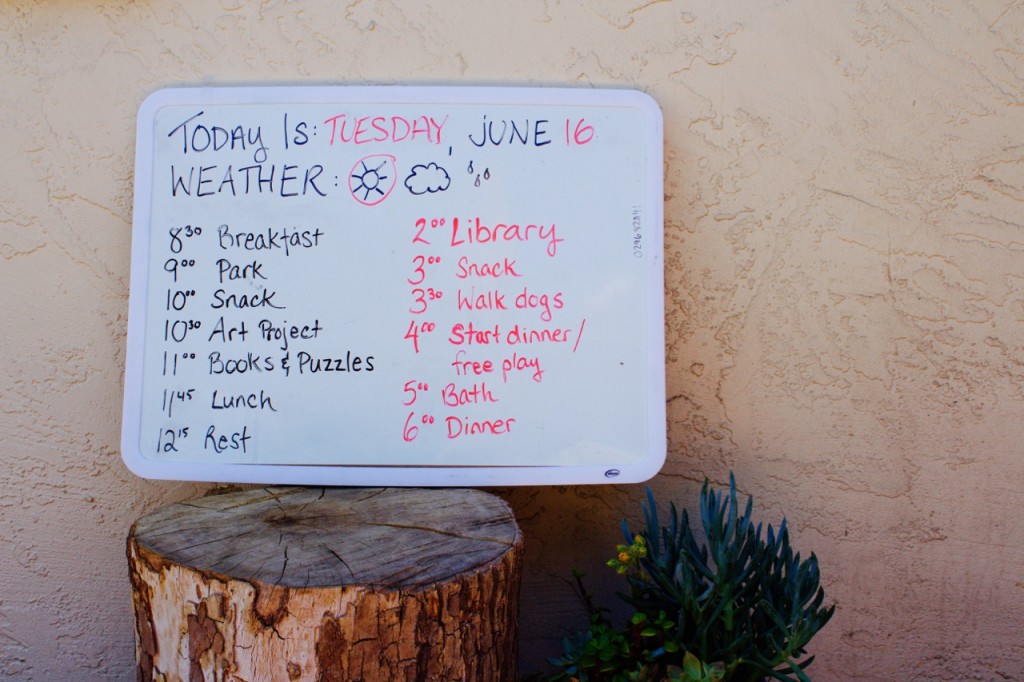 TODAY IS: TUESDAY, JUNE 16
WEATHER:
8³⁰ Breakfast
9⁰⁰ Park
10⁰⁰ Snack
10³⁰ Art Project
11⁰⁰ Books & Puzzles
11⁴⁵ Lunch
12¹⁵ Rest
2⁰⁰ Library
3⁰⁰ Snack
3³⁰ Walk dogs
4⁰⁰ Start dinner/
free play
5⁰⁰ Bath
6⁰⁰ Dinner